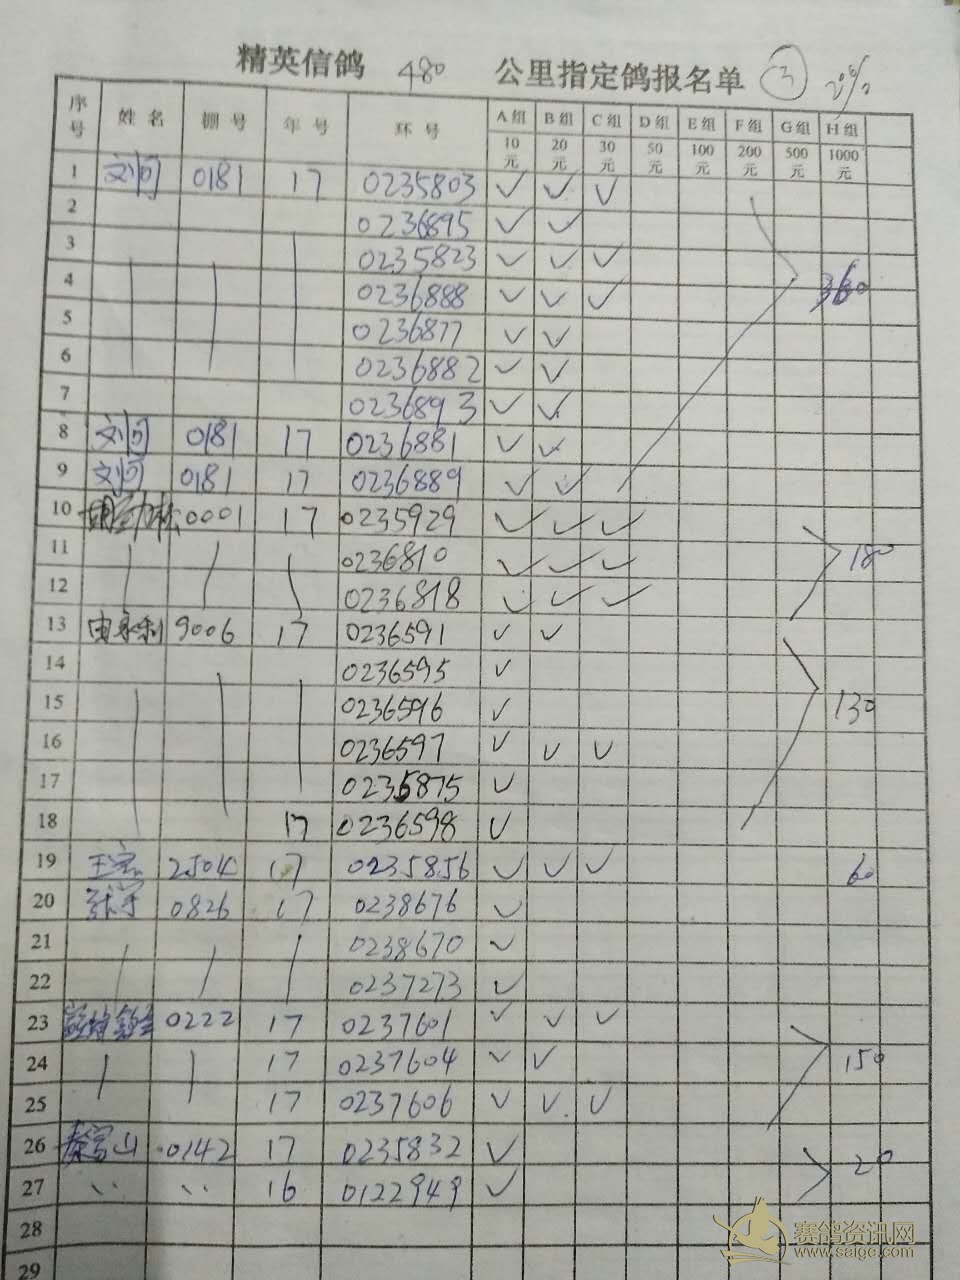 精英信鸽 480 公里指定鸽报名单 ③ 20%
序号 姓名 棚号 年号 环号 A组 B组 C组 D组 E组 F组 G组 H组
10元 20元 30元 50元 100元 200元 500元 1000元
1 刘问 0181 17 0235803 ✓ ✓ ✓
2 0236895 ✓ ✓
3 0235823 ✓ ✓ ✓
4 0236888 ✓ ✓ ✓ 360
5 0236877 ✓ ✓
6 0236882 ✓ ✓
7 0236893 ✓ ✓
8 刘问 0181 17 0236881 ✓ ✓
9 刘问 0181 17 0236889 ✓ ✓
10 0001 17 0235929 ✓ ✓ ✓
11 0236810 ✓ ✓ ✓ 180
12 0236818 ✓ ✓ ✓
13 9006 17 0236591 ✓ ✓
14 0236595 ✓
15 0236596 ✓ 130
16 0236597 ✓ ✓ ✓
17 0235875 ✓
18 17 0236598 ✓
19 2504 17 0235856 ✓ ✓ ✓ 60
20 0826 17 0238676 ✓
21 0238670 ✓
22 0237273 ✓
23 0222 17 0237601 ✓ ✓ ✓
24 17 0237604 ✓ ✓ 150
25 17 0237606 ✓ ✓ ✓
26 秦宝山 0142 17 0235832 ✓ 20
27 〃 〃 16 0122949 ✓
28
29
赛鸽资讯网
www.saige.com